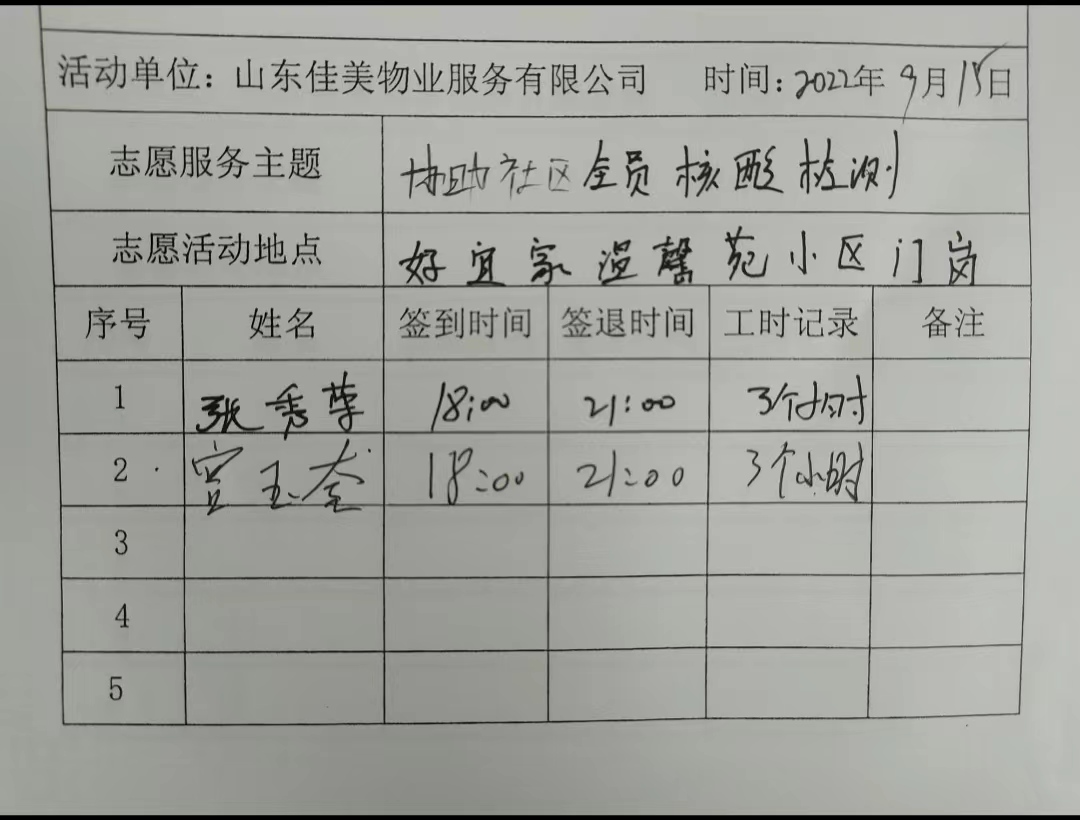 活动单位：山东佳美物业服务有限公司 时间：2022年9月15日
志愿服务主题 协助社区全员核酸检测
志愿活动地点 好宜家温馨苑小区门岗
序号 姓名 签到时间 签退时间 工时记录 备注
1 张秀萍 18:00 21:00 3个小时
2 宫玉奎 18:00 21:00 3个小时
3
4
5